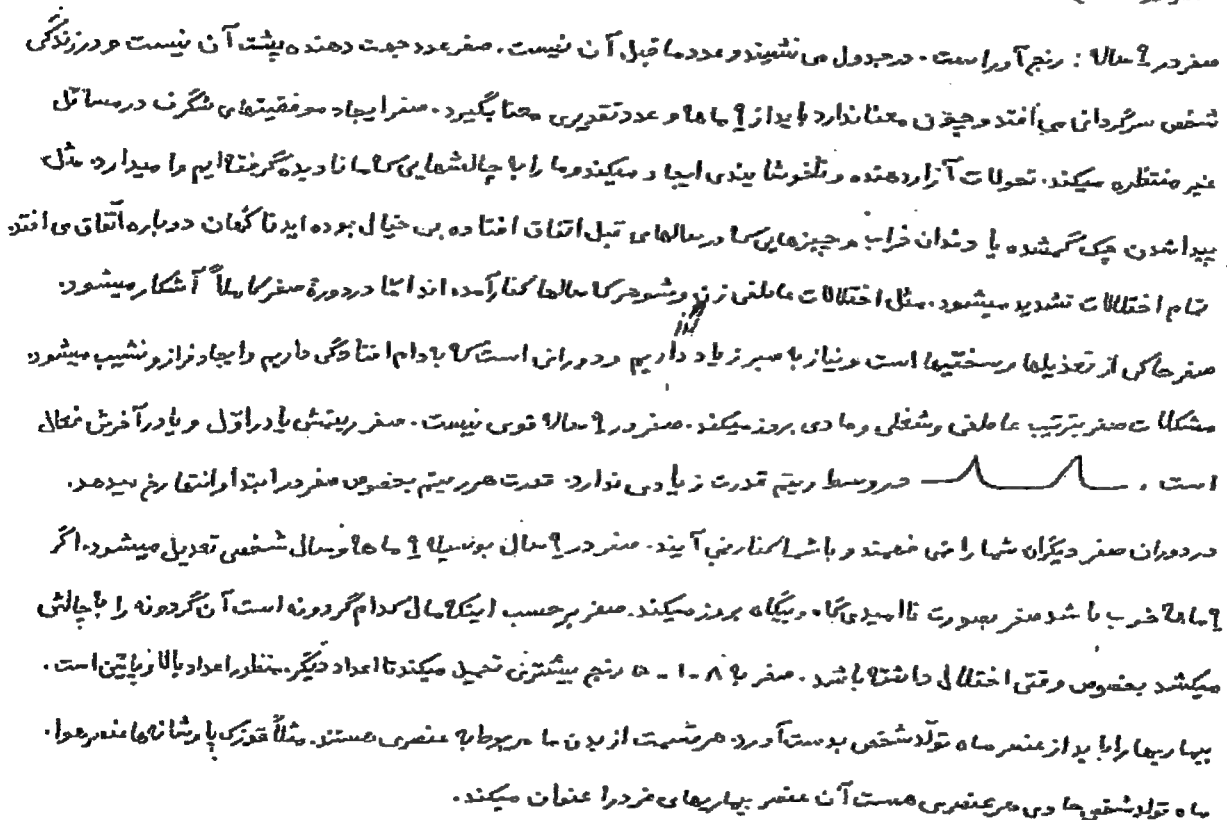 صفر در ۹ ساله : رنج آور است . در جدول می نشیند و عدد ما قبل آن نیست . صفر عدد جهت دهنده پشت آن نیست و در زندگی
شخص سرگردانی می افتد و چون معنا ندارد باید از ۹ ماهه و عدد تقدیری معنا بگیرد . صفر ایجاد موفقیتهای شگرف در مسائل
غیر منتظره میکند . تحولات آزار دهنده و ناخوشایندی ایجاد میکند و ما را با چالشهایی که ما نادیده گرفته ایم وا میدارد . مثل
پیدا شدن چک گمشده یا دندان خراب و چیزهایی که در سالهای قبل اتفاق افتاده بی خیال بوده اید ناگهان دوباره اتفاق می افتد .
تمام اختلالات تشدید میشود . مثل اختلالات عاطفی زن و شوهر که سالها کنار آمده اند امّا در دورهٔ صفر کاملاً آشکار میشود .
صفر حاکی از تعذیلها و سختیها است و نیاز به صبر زیاد داریم و دورانی است که به دام افتادگی داریم و ایجاد فراز و نشیب میشود .
مشکلات صفر بترتیب عاطفی و شغلی و مادی بروز میکند . صفر در ۹ ساله قوی نیست . صفر ریتمش یا در اوّل و یا در آخرش فعال
است . در وسط ریتم قدرت زیادی ندارد . قدرت هر ریتم بخصوص صفر در ابتدا و انتها رخ میدهد .
در دوران صفر دیگران شما را نمی فهمند و با شما کنار نمی آیند . صفر در ۹ سال بوسیله ۹ ماهه و سال شخصی تعدیل میشود . اگر
۹ ماهه خوب باشد صفر بصورت ناامیدی گاه و بیگاه بروز میکند . صفر بر حسب اینکه مال کدام گردونه است آن گردونه را به چالش
میکشد بخصوص وقتی اختلال داشته باشد . صفر به ۸ - ۱ - ۵ رنج بیشتری تحمیل میکند تا اعداد دیگر . منظور اعداد بالا و پایین است .
بیماریها را باید از عنصر ماه تولّد شخص بدست آورد . هر قسمت از بدن ما مربوط به عنصری هستند . مثلاً قوزک پا و شانه ها عنصر هوا .
ماه تولد شخص حاوی هر عنصری هست آن عنصر بیماریهای فرد را عنوان میکند .